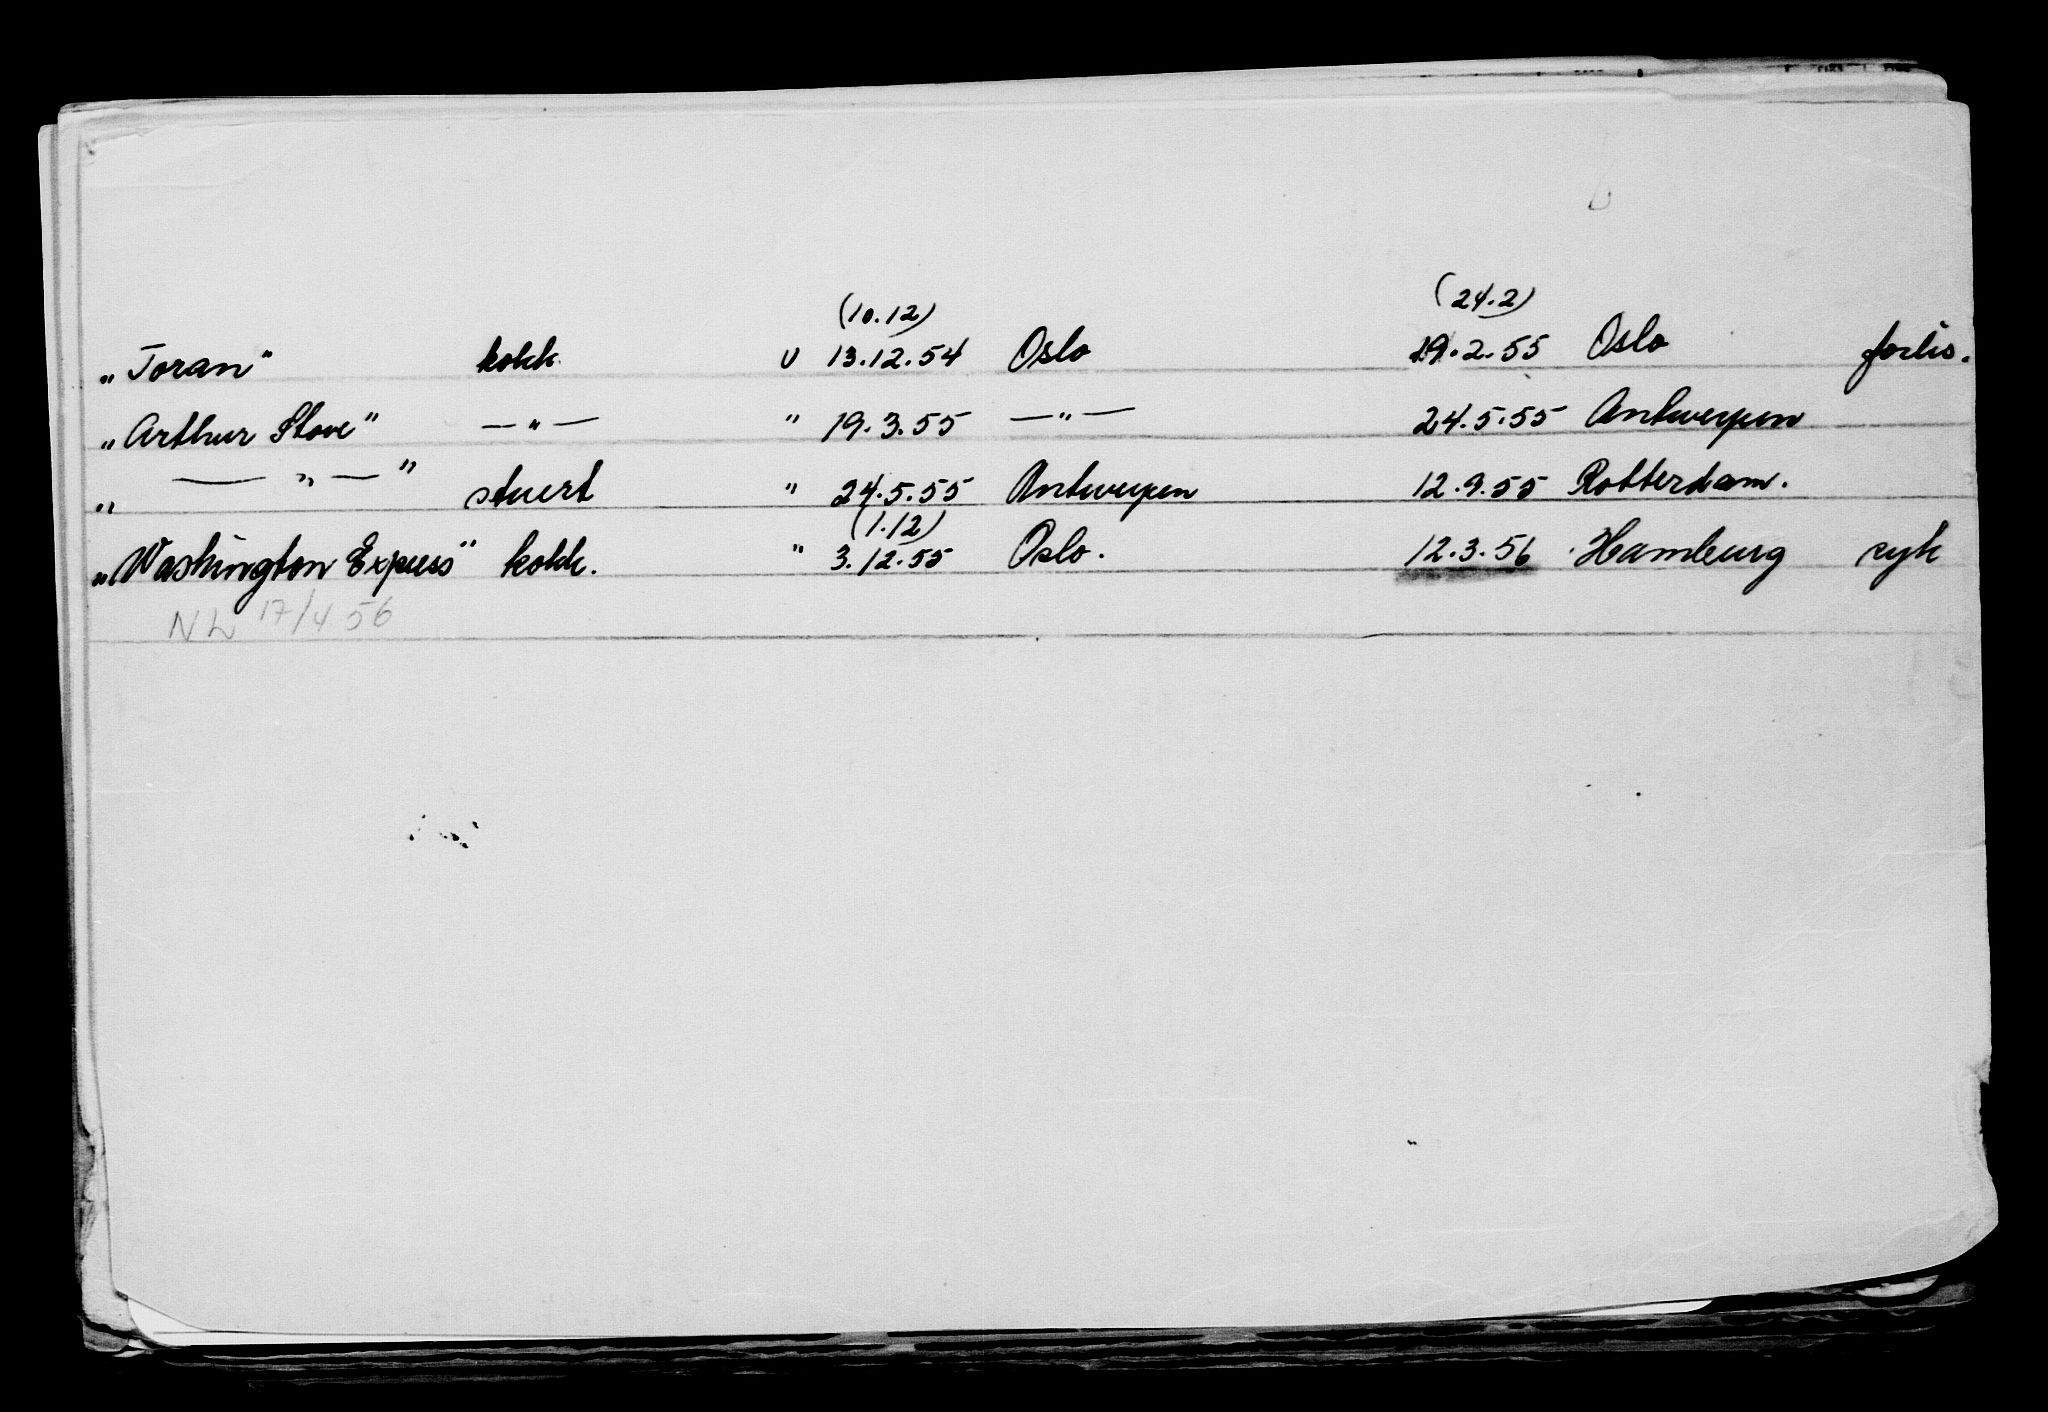 (10.12) (24.2)
„Toran" kokk U 13.12.54 Oslo 19.2.55 Oslo forlis.
„Arthur Stove" —„— " 19.3.55 —„— 24.5.55 Antwerpen
„ —„— " stuert " 24.5.55 Antwerpen 12.9.55 Rotterdam.
(1.12)
„Washington Express" kokk. " 3.12.55 Oslo. 12.3.56 Hamburg syk
17/4 56